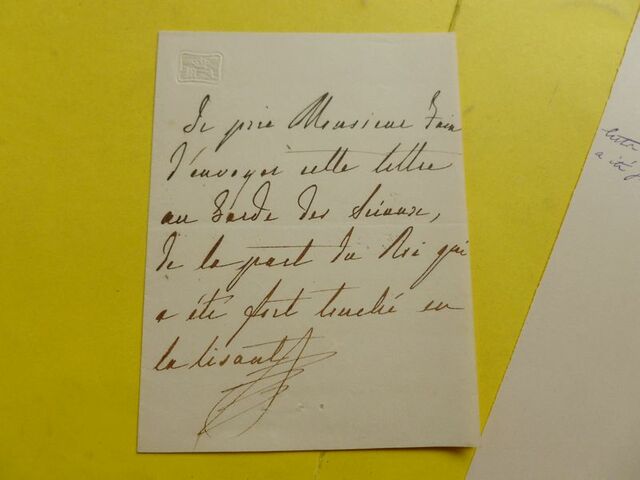 Je prie Monsieur Fain
d'envoyer cette lettre
au Garde des Sceaux,
de la part du Roi qui
a été fort touché en
la lisant
a été